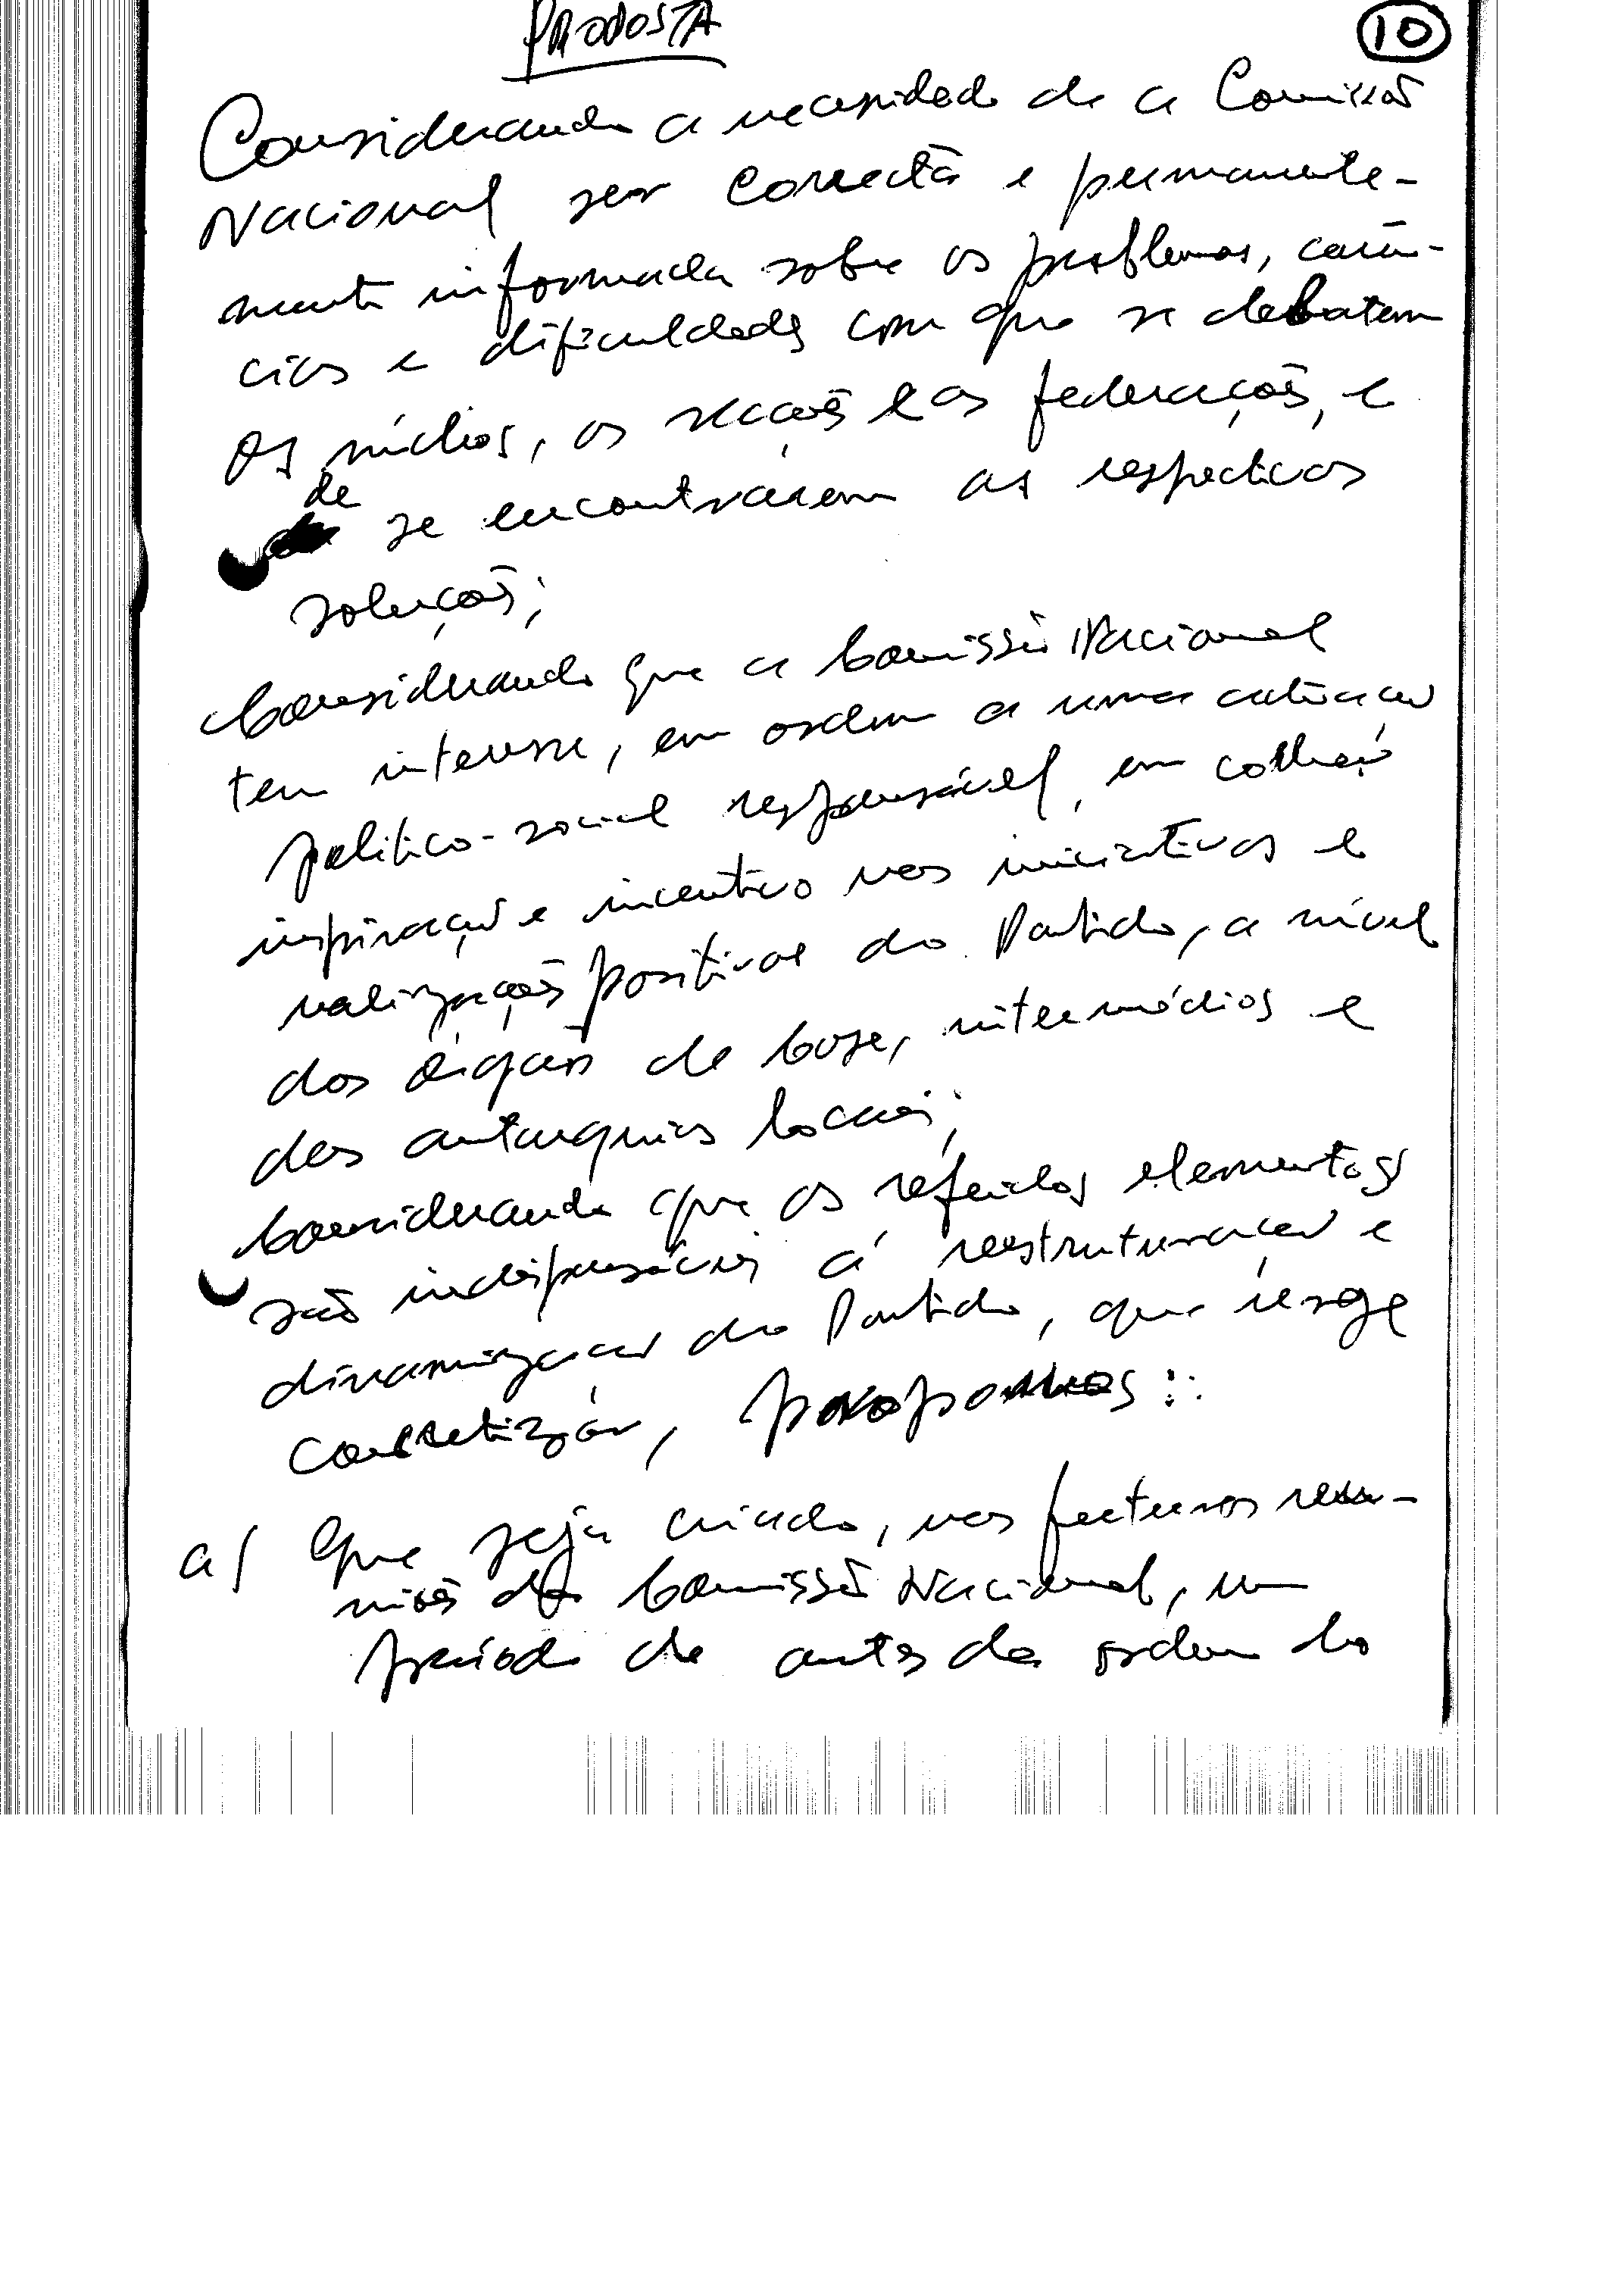 PROPOSTA
10
Considerando a necessidade de a Comissão
Nacional ser correcta e permanente-
mente informada sobre os problemas, carên-
cias e dificuldades com que se debatem
os núcleos, as secções e as federações, e
de
se encontrarem as respectivas
soluções;
Considerando que a Comissão Nacional
tem interesse, em ordem a uma actuação
político-social responsável, em colher
inspiração e incentivo nas iniciativas e
realizações positivas do Partido, a nível
dos órgãos de base, intermédios e
das autarquias locais;
Considerando que os referidos elementos
são indispensáveis á reestruturação e
dinamização do Partido, que urge
concretizar, propomos:
a) Que seja criado, nas futuras reu-
niões da Comissão Nacional, um
período de antes da ordem do